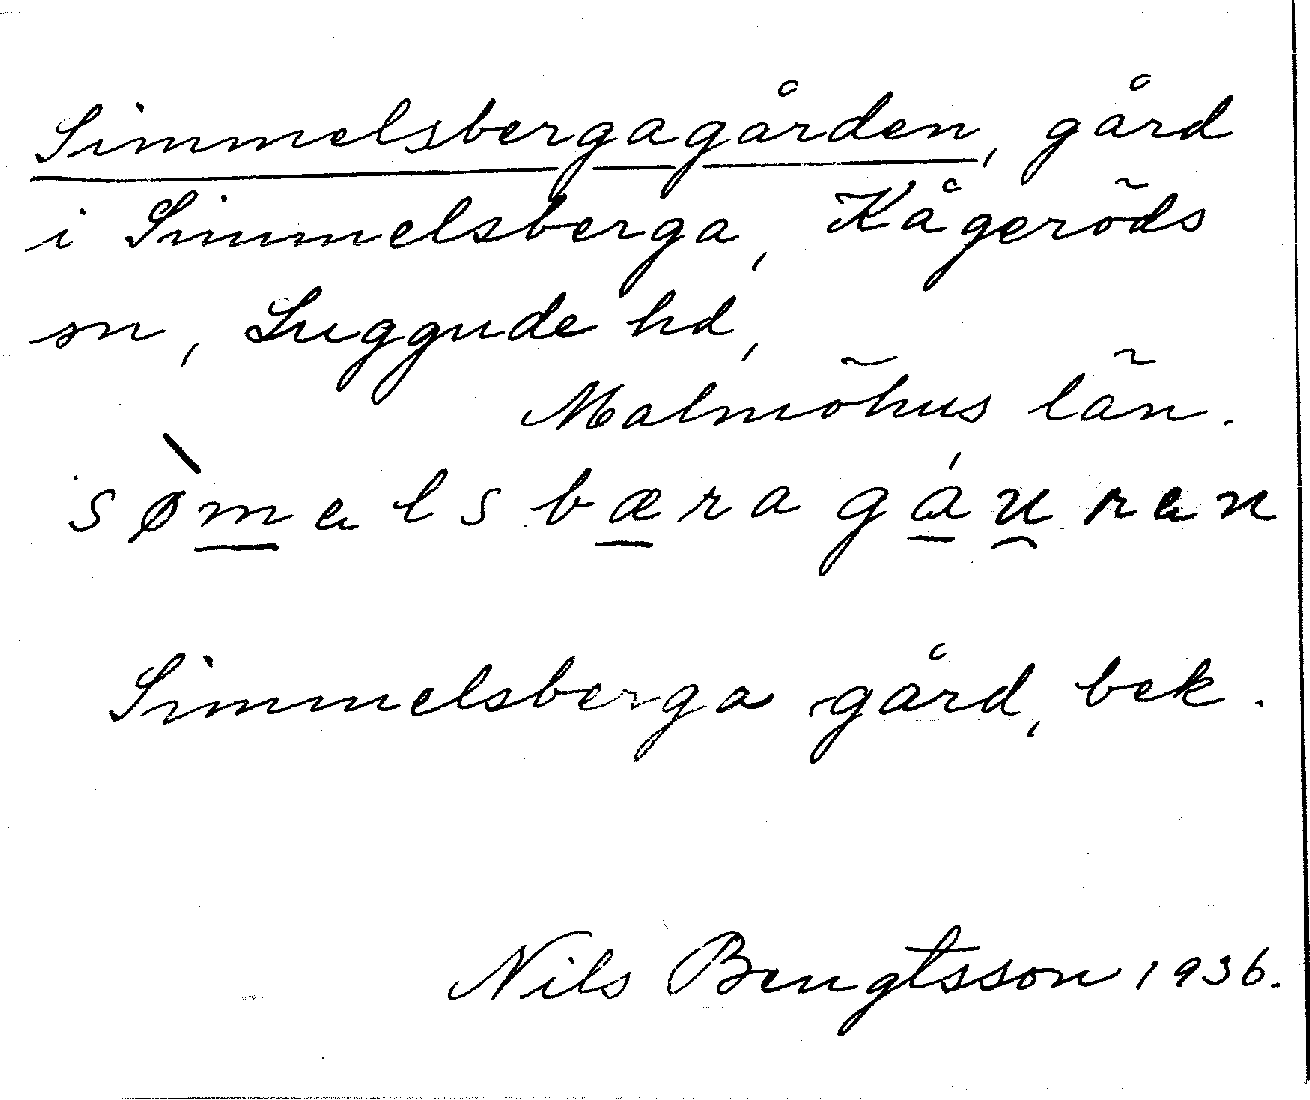 Simmelsbergagården, gård
i Simmelsberga, Kågeröds
sn, Luggude hd,
Malmöhus län.
sø̀m̲əlsbæ̲ragá̲u̯rən
Simmelsberga gård, bek.
Nils Bengtsson 1936.